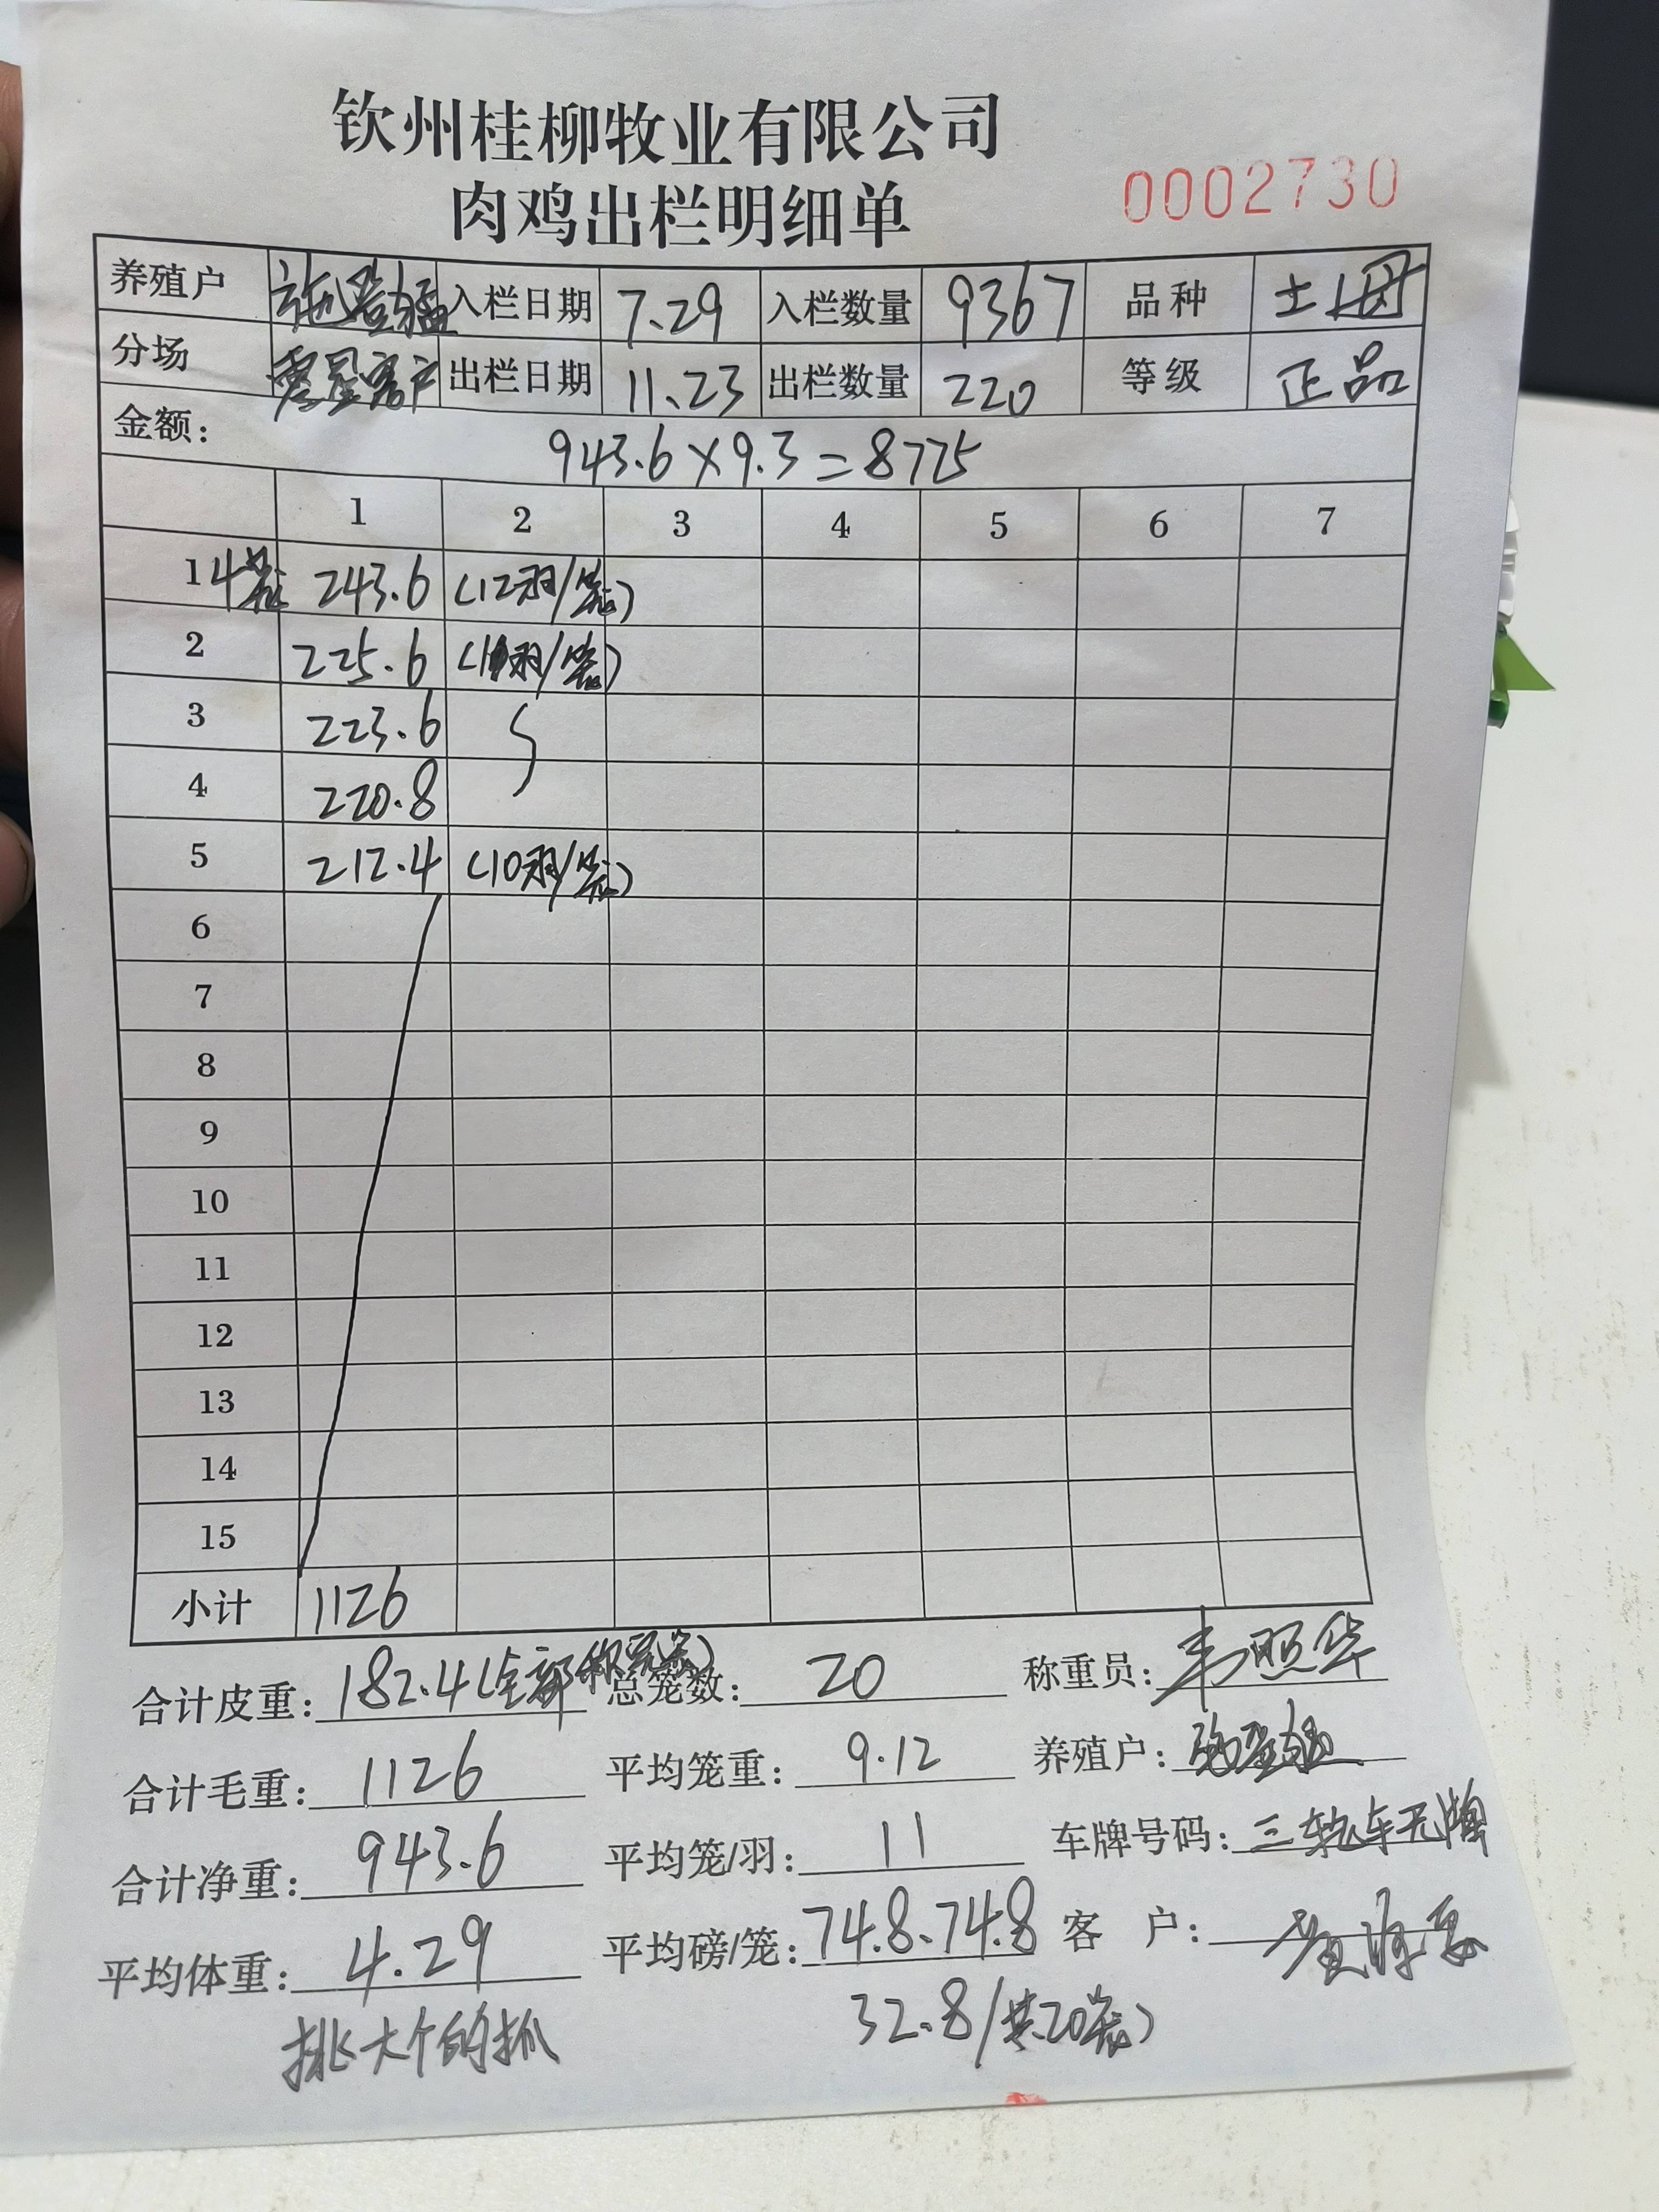 钦州桂柳牧业有限公司
肉鸡出栏明细单
0002730
养殖户 施登猛 入栏日期 7.29 入栏数量 9367 品种 土母
分场 零星客户 出栏日期 11.23 出栏数量 220 等级 正品
金额: 943.6×9.3=8775
1 2 3 4 5 6 7
1 4笼 243.6 (12羽/笼)
2 225.6 (11羽/笼)
3 223.6
4 220.8
5 212.4 (10羽/笼)
6
7
8
9
10
11
12
13
14
15
小计 1126
合计皮重: 182.4(全部称完笼) 总笼数: 20 称重员: 韦照华
合计毛重: 1126 平均笼重: 9.12 养殖户: 施登猛
合计净重: 943.6 平均笼/羽: 11 车牌号码: 三轮车无牌
平均体重: 4.29 平均磅/笼: 74.8、74.8 客 户:
挑大个的抓 32.8/共20笼)